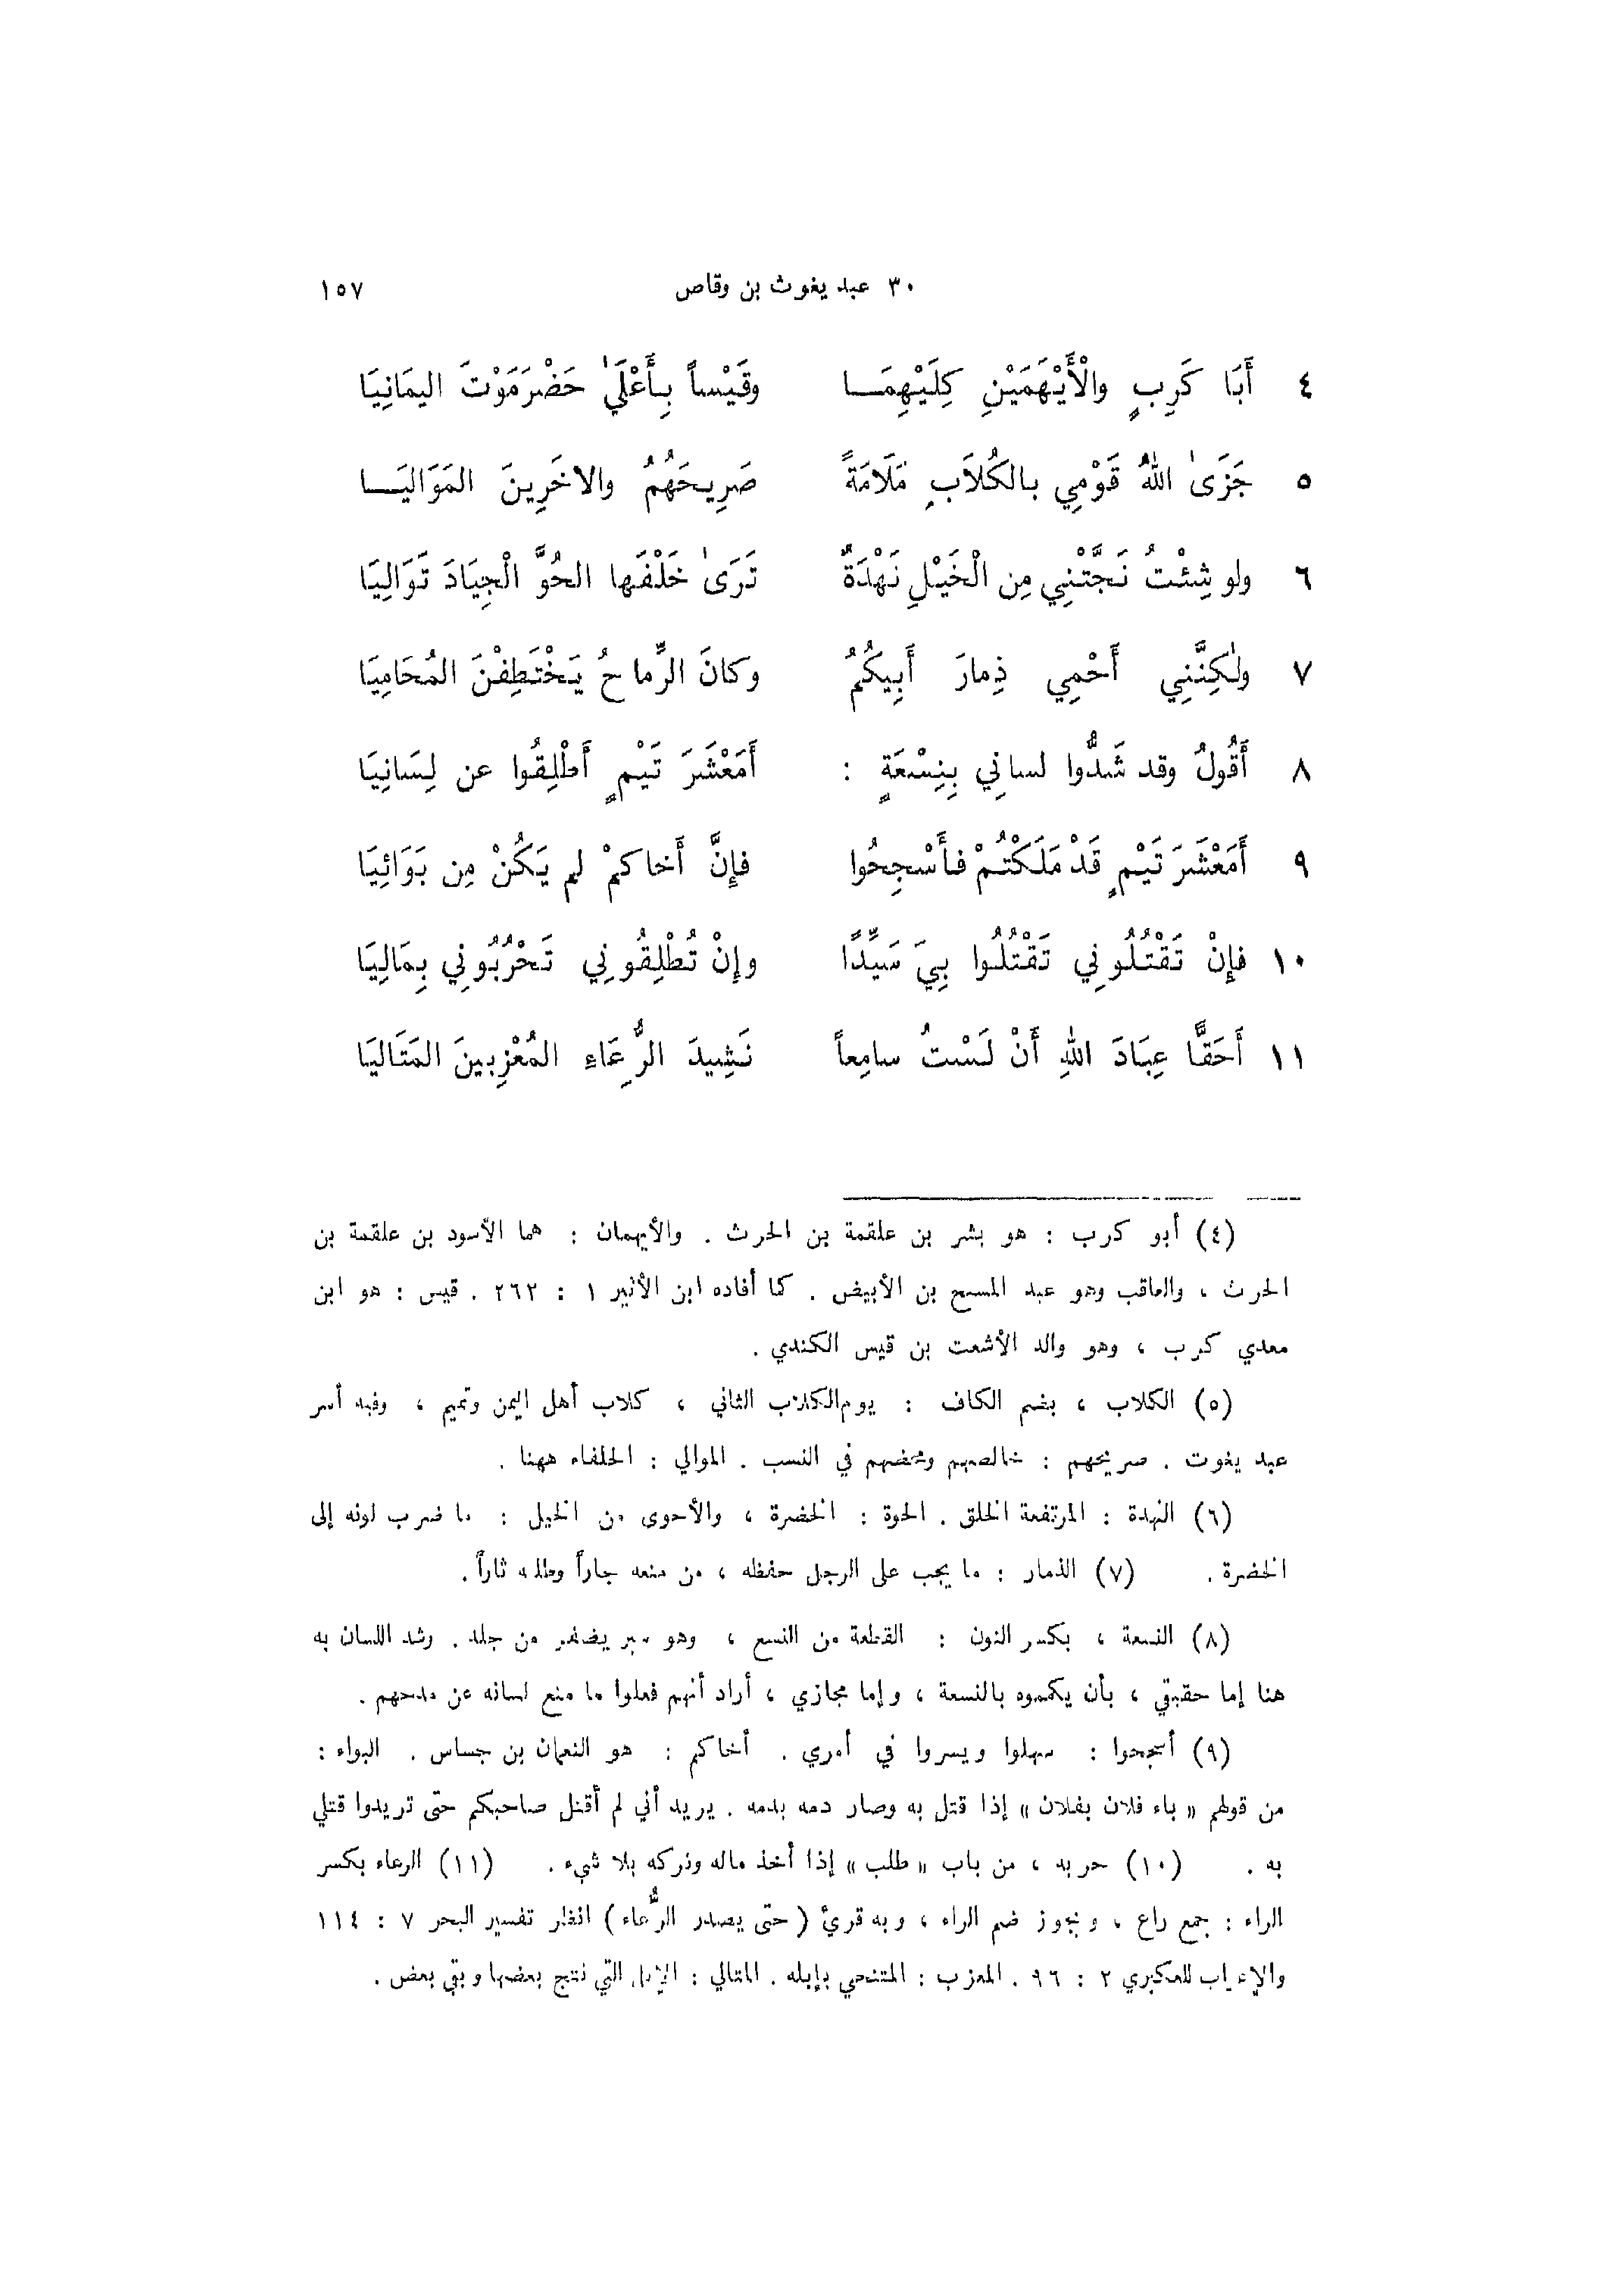 ٣٠ عبد يغوث بن وقاص ١٥٧
٤ أَبَا كَرِبٍ والْأَيْهَمَيْنِ كِلَيْهِمَـــا وقَيْساً بِأَعْلَىٰ حَضْرَمَوْتَ اليمَانِيَا
٥ جَزَىٰ اللهُ قَوْمِي بالكُلاَبِ مَلَامَةً صَرِيحَهُمُ والاخَرِينَ المَوَاليَـــا
٦ ولو شِئْتُ نَجَّتْنِي مِن الْخَيْلِ نَهْدَةٌ تَرَىٰ خَلْفَها الحُوَّ الْجِيَادَ تَوَالِيَا
٧ ولٰكِنَّنِي أَحْمِي ذِمارَ أَبِيكُمُ وكانَ الرِّماحُ يَخْتَطِفْنَ المُحَامِيَا
٨ أَقُولُ وقد شَدُّوا لساني بِنِسْعَةٍ : أَمَعْشَرَ تَيْمٍ أَطْلِقُوا عن لِسَانِيَا
٩ أَمَعْشَرَ تَيْمٍ قَدْ مَلَكْتُمْ فأَسْجِحُوا فإِنَّ أَخاكمْ لم يَكُنْ مِن بَوَائِيَا
١٠ فإِنْ تَقْتُلُونِي تَقْتُلُوا بِيَ سَيِّدًا وإِنْ تُطْلِقُونِي تَحْرُبُونِي بِمَالِيَا
١١ أَحَقًّا عِبَادَ اللهِ أَنْ لَسْتُ سامِعاً نَشِيدَ الرُّعَاءِ المُعْزِبِينَ المَتَاليَا
(٤) أبو كرب : هو بشر بن علقمة بن الحرث . والأيهمان : هما الأسود بن علقمة بن
الحرث ، والعاقب وهو عبد المسيح بن الأبيض . كما أفاده ابن الأثير ١ : ٢٦٢ . قيس : هو ابن
معدي كرب ، وهو والد الأشعث بن قيس الكندي .
(٥) الكلاب ، بضم الكاف : يوم الكلاب الثاني ، كلاب أهل اليمن وتميم ، وفيه أسر
عبد يغوث . صريحهم : خالصهم ومحضهم في النسب . الموالي : الحلفاء ههنا .
(٦) النهدة : المرتفعة الخلق . الحوة : الخضرة ، والأحوى من الخيل : ما ضرب لونه إلى
الخضرة . (٧) الذمار : ما يجب على الرجل حفظه ، من منعه جاراً وطلبه ثاراً .
(٨) النسعة ، بكسر النون : القطعة من النسع ، وهو سير يضفر من جلد . وشد اللسان به
هنا إما حقيقي ، بأن يكمموه بالنسعة ، وإما مجازي ، أراد أنهم فعلوا ما منع لسانه عن مدحهم .
(٩) أسجحوا : سهلوا ويسروا في أمري . أخاكم : هو النعمان بن جساس . البواء :
من قولهم « باء فلان بفلان » إذا قتل به وصار دمه بدمه . يريد أني لم أقتل صاحبكم حتى تريدوا قتلي
به . (١٠) حربه ، من باب « طلب » إذا أخذ ماله وتركه بلا شيء . (١١) الرعاء بكسر
الراء : جمع راع ، ويجوز ضم الراء ، وبه قرئ ( حتى يصدر الرُّعاء ) انظر تفسير البحر ٧ : ١١٤
والإعراب للعكبري ٢ : ٩٦ . المعزب : المتنحي بإبله . المتالي : الإبل التي نتج بعضها وبقي بعض .